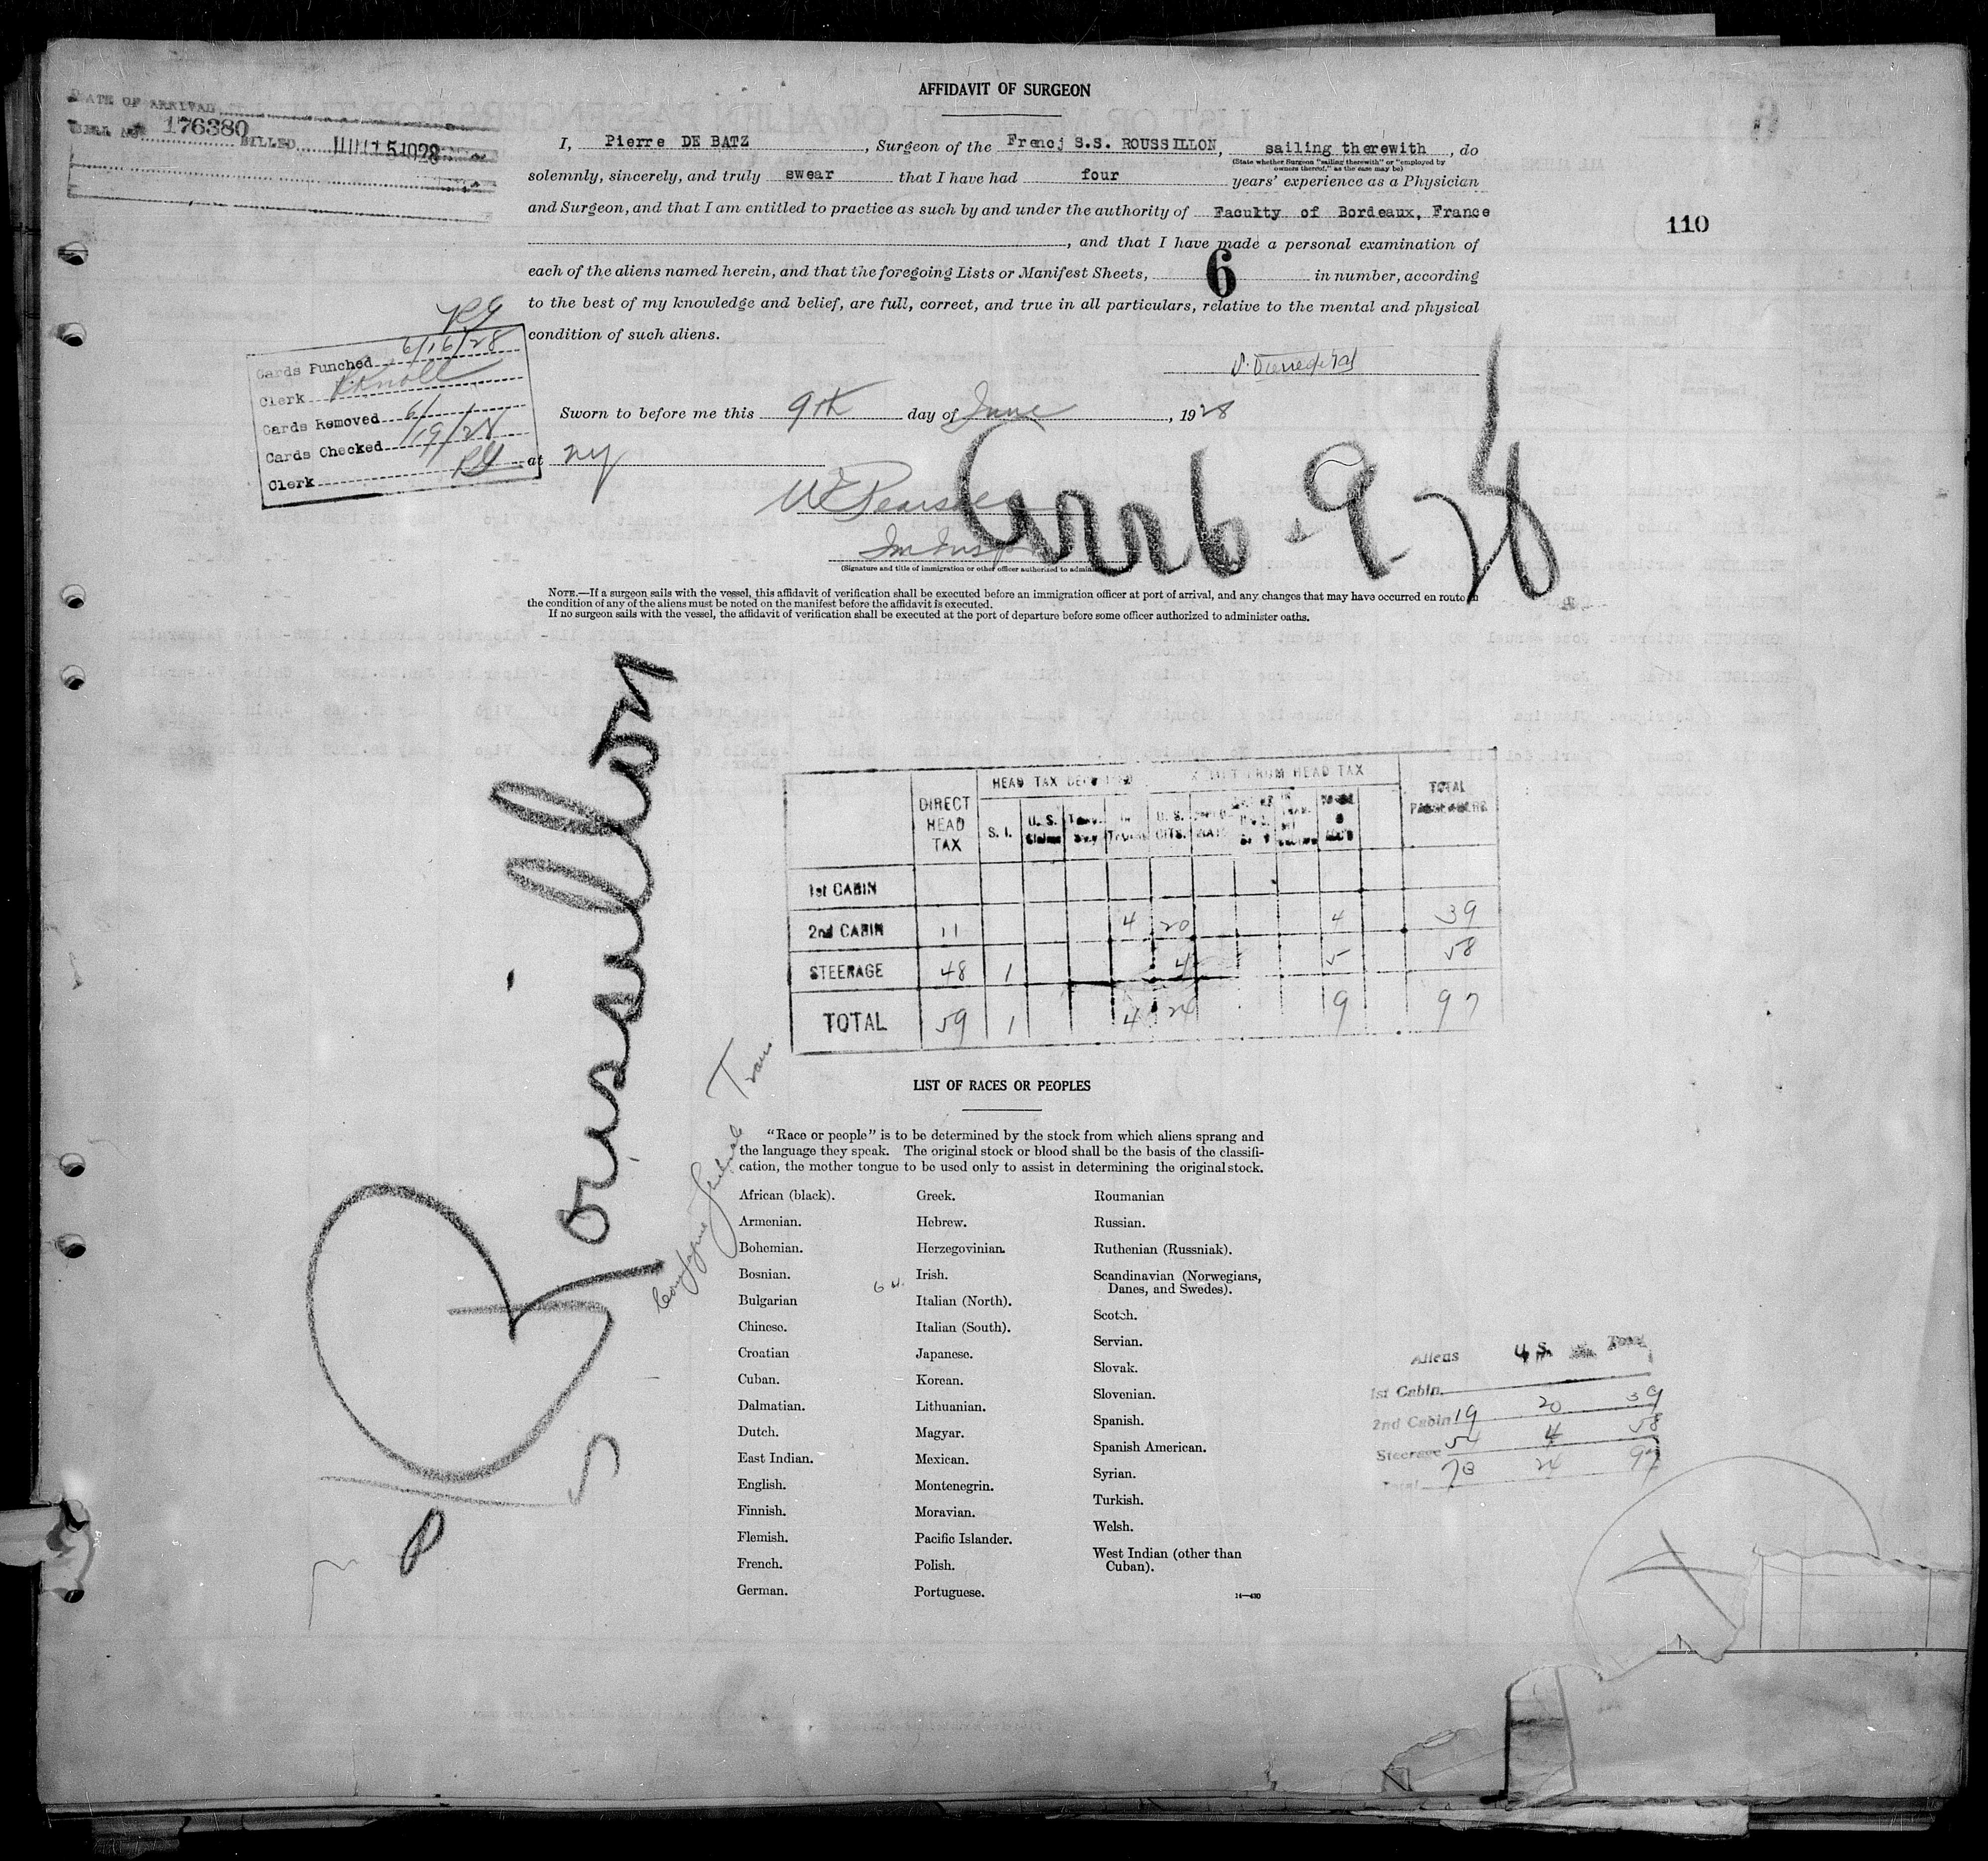 AFFIDAVIT OF SURGEON
DATE OF ARRIVAL
176380
BILLED
I, Pierre DE BATZ, Surgeon of the Frencj S.S. ROUSSILLON, sailing therewith, do
(State whether Surgeon "sailing therewith" or "employed by
owners thereof," as the case may be)
solemnly, sincerely, and truly swear that I have had four years' experience as a Physician
and Surgeon, and that I am entitled to practice as such by and under the authority of Faculty of Bordeaux, France
, and that I have made a personal examination of
110
each of the aliens named herein, and that the foregoing Lists or Manifest Sheets, 6 in number, according
to the best of my knowledge and belief, are full, correct, and true in all particulars, relative to the mental and physical
condition of such aliens.
Cards Punched 6/16/28
Clerk
Cards Removed 6/
Cards Checked 6/19/28
Clerk
Sworn to before me this 9th day of June, 1928
at NY
Arr 6-9-28
(Signature and title of immigration or other officer authorized to
NOTE.—If a surgeon sails with the vessel, this affidavit of verification shall be executed before an immigration officer at port of arrival, and any changes that may have occurred en route in
the condition of any of the aliens must be noted on the manifest before the affidavit is executed.
If no surgeon sails with the vessel, the affidavit of verification shall be executed at the port of departure before some officer authorized to administer oaths.
Roussillon
HEAD TAX FROM HEAD TAX
DIRECT HEAD TAX S. I. U. S. Claims U. S. CITS. TOTAL PASSENGERS
1st CABIN
2nd CABIN 11 4 20 4 39
STEERAGE 48 1 4 5 58
TOTAL 59 1 4 24 9 97
LIST OF RACES OR PEOPLES
"Race or people" is to be determined by the stock from which aliens sprang and
the language they speak. The original stock or blood shall be the basis of the classifi-
cation, the mother tongue to be used only to assist in determining the original stock.
African (black).
Armenian.
Bohemian.
Bosnian.
Bulgarian
Chinese.
Croatian
Cuban.
Dalmatian.
Dutch.
East Indian.
English.
Finnish.
Flemish.
French.
German.
Greek.
Hebrew.
Herzegovinian.
Irish.
Italian (North).
Italian (South).
Japanese.
Korean.
Lithuanian.
Magyar.
Mexican.
Montenegrin.
Moravian.
Pacific Islander.
Polish.
Portuguese.
Roumanian
Russian.
Ruthenian (Russniak).
Scandinavian (Norwegians,
Danes, and Swedes).
Scotch.
Servian.
Slovak.
Slovenian.
Spanish.
Spanish American.
Syrian.
Turkish.
Welsh.
West Indian (other than
Cuban).
Aliens U.S. Total
1st Cabin
2nd Cabin 19 20 39
Steerage 54 4 58
Total 73 24 97